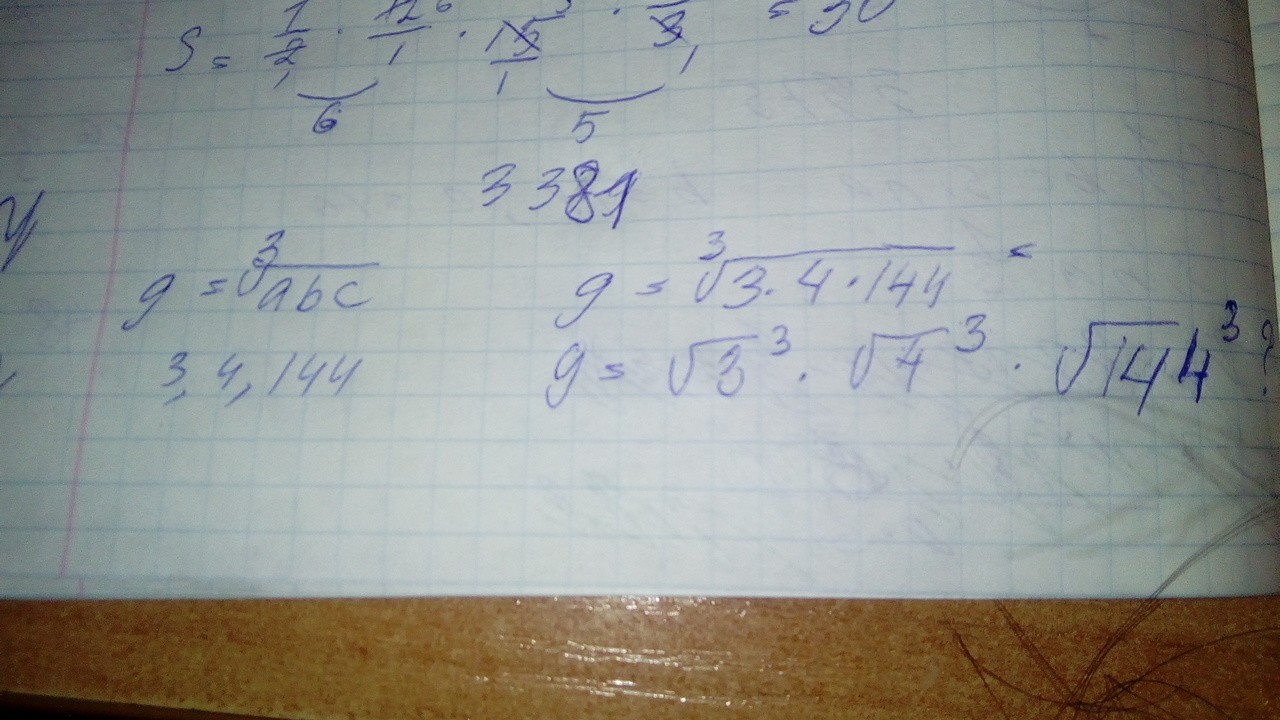 S = 1/2 · 12 6/1 · 15 5/1 · /3 1 = 30
6 5
3 3 81
g = ³√abc g = ³√3·4·144 =
3, 4, 144 g = √3³ · √4³ · √144³ ?